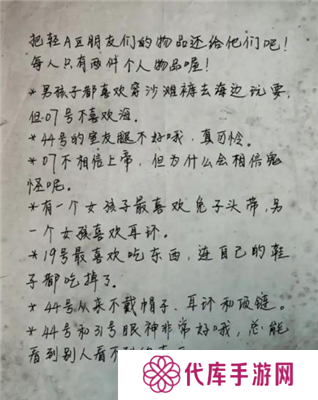 把轻A区朋友们的物品还给他们吧！
每人只有两件个人物品喔！
*男孩子都喜欢穿沙滩裤去海边玩耍，
但07号不喜欢海。
*44号的室友腿不好哦，真可怜。
*07不相信上帝，但为什么会相信鬼
怪呢。
*有一个女孩子最喜欢兔子头带，另
一个女孩喜欢耳环。
*19号最喜欢吃东西，连自己的鞋
子都吃掉了。
*44号从来不戴帽子、耳环和项链。
*44号和31号眼神非常好哦，总能
看到别人看不
代库手游网